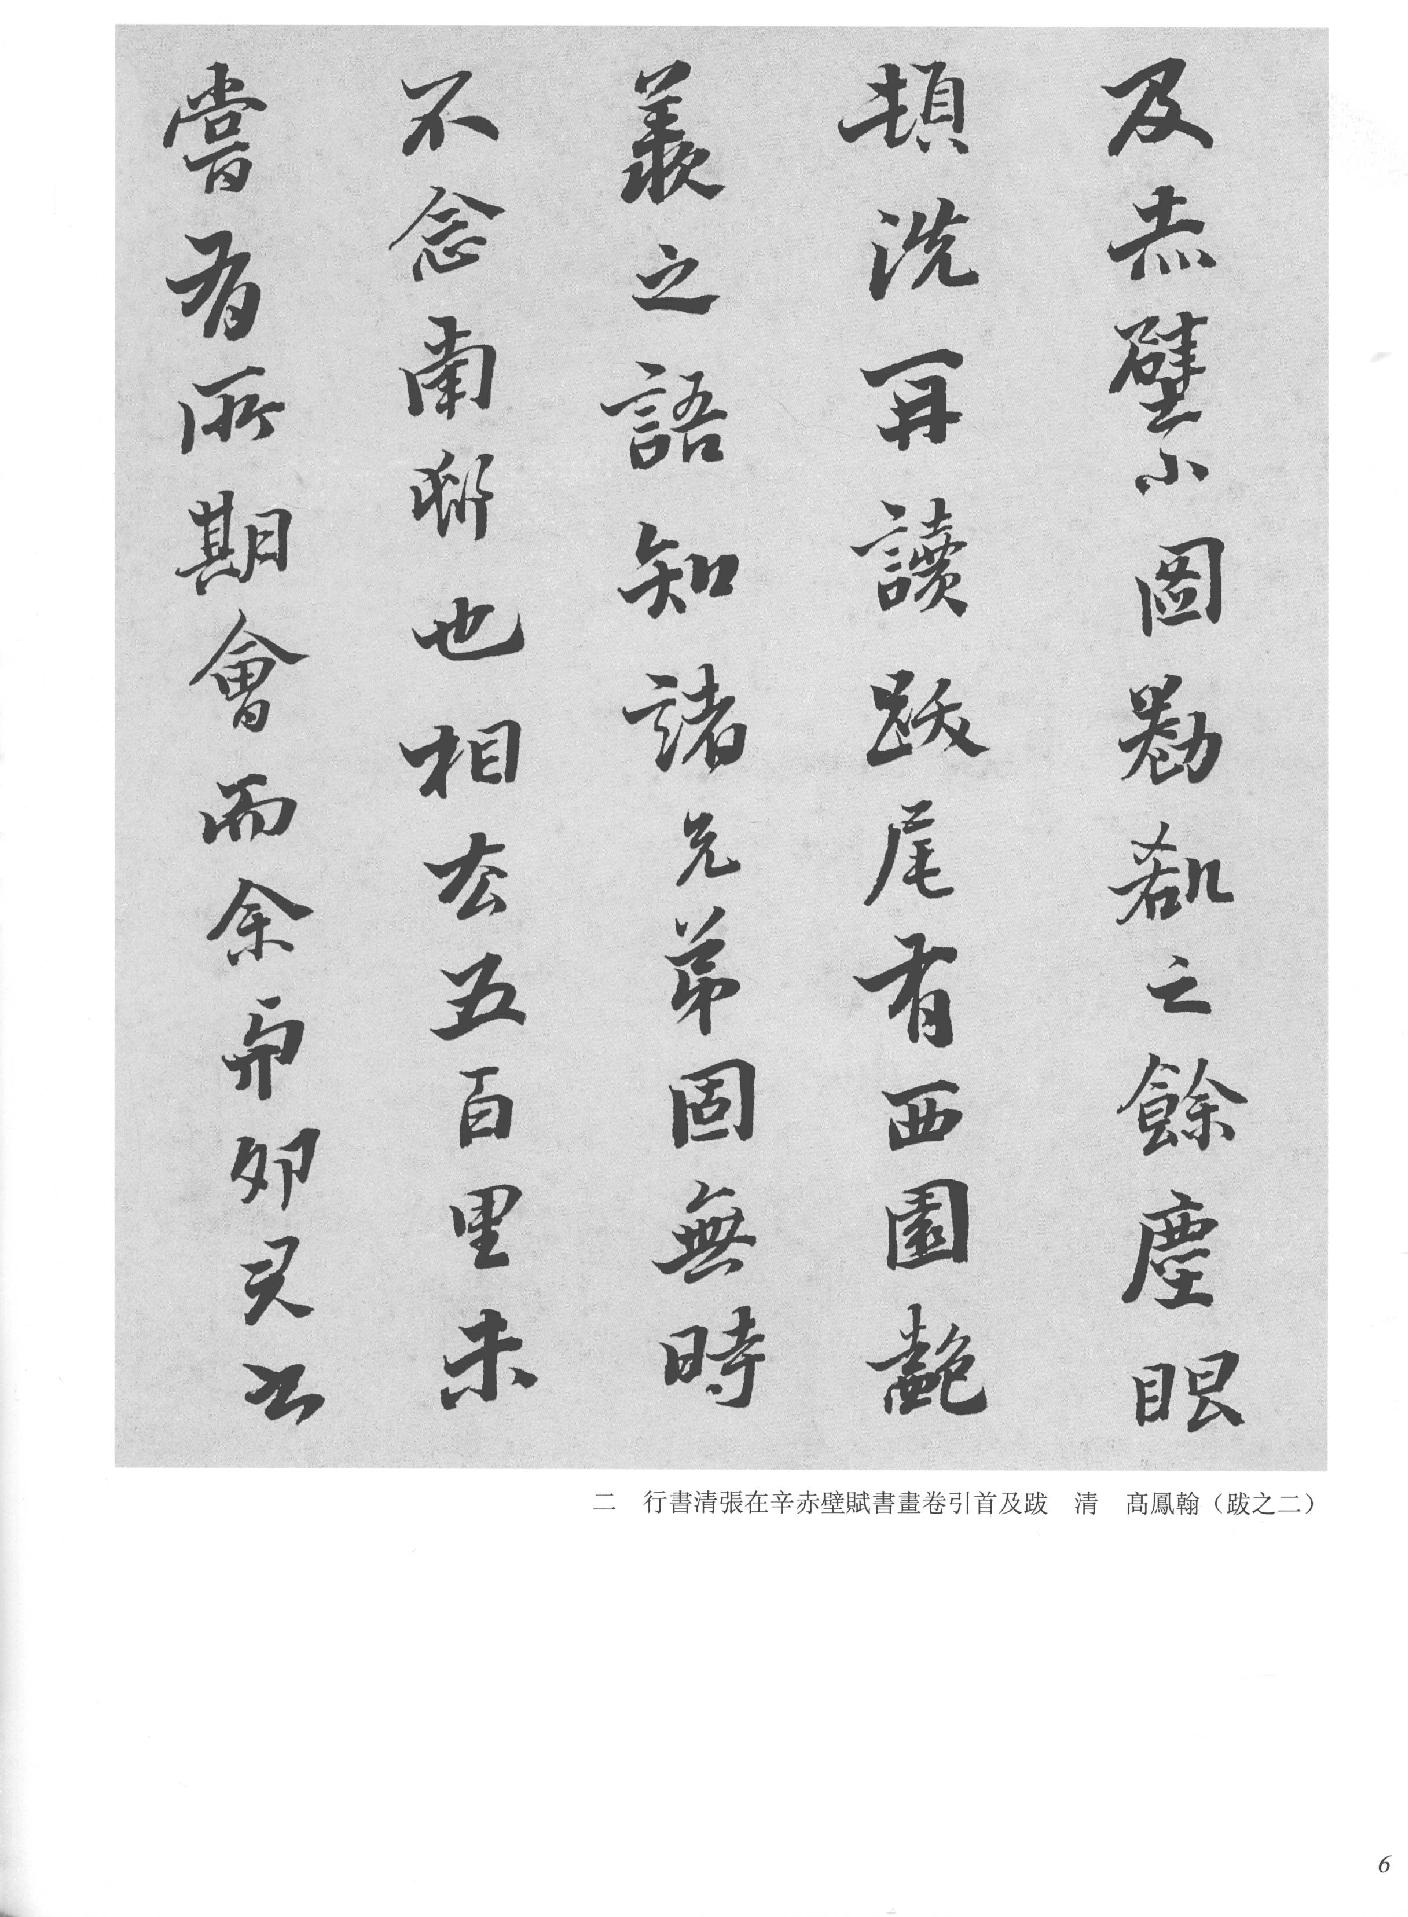 及赤壁小圖勸難之餘塵眼
頓洗再讀跋尾有西園艷
羨之語知諸兄弟固無時
不念南邨也相去五百里未
嘗有所期會而余與卯君公
二　行書清張在辛赤壁賦書畫卷引首及跋　清　高鳳翰（跋之二）
6